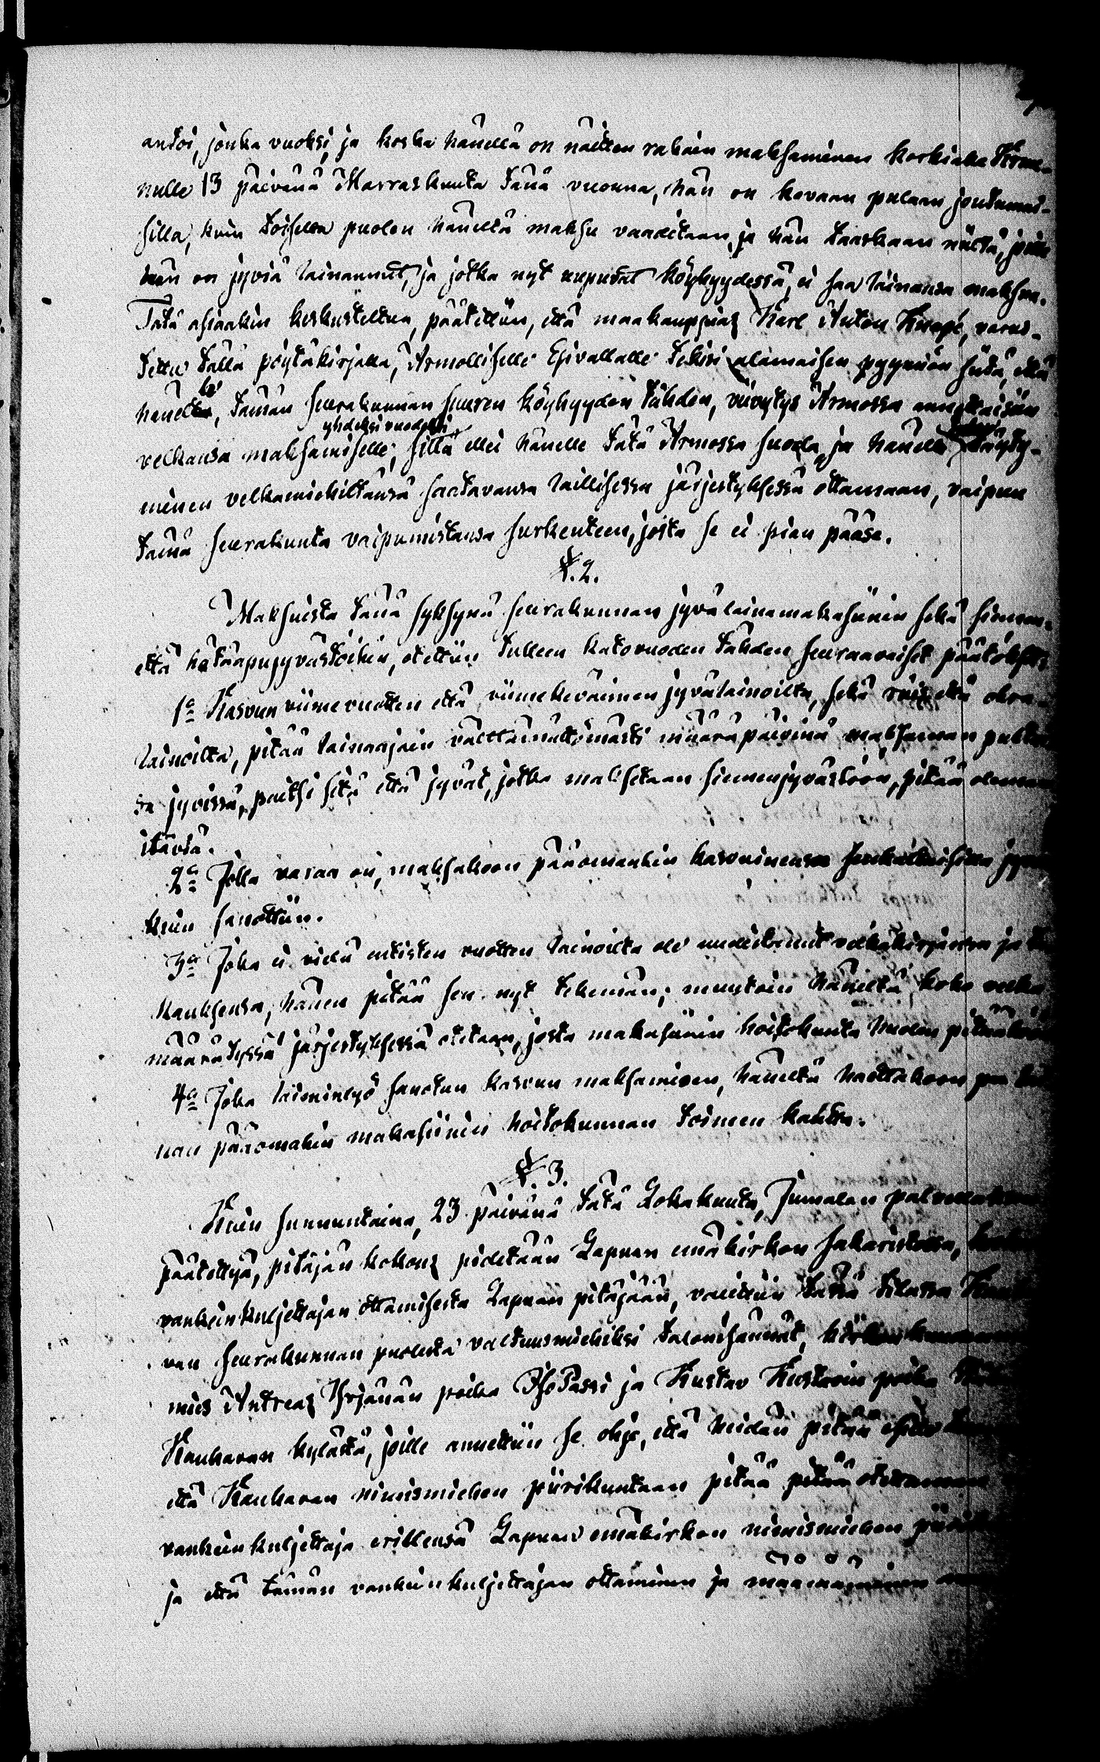 antoi, jonka vuoksi, ja koska hänellä on näitten rahain maksaminen korkialle Kruu-
nulle 13 päivänä Marraskuuta tänä vuonna, hän on kovaan pulaan joutumai-
silla, kuin toiselta puolen häneltä maksu vaaditaan, ja hän taaskaan niiltä, joille
hän on jyviä lainannut, ja jotka nyt uupuvat köyhyydessä, ei saa lainaansa maksun.
Tätä asiaakin keskusteltua, päätettiin, että maakauppias Karl Anton Knape, varus-
tettu tällä pöytäkirjalla, Armolliselle Esivallalle tekisi alamaisen pyynnön siitä, että
hänelle, tämän seurakunnan suuren köyhyyden tähden, viivytys Armossa annettaisiin
yhdeksi vuodeksi
velkansa maksamiselle; sillä ellei hänelle tätä Armossa suoda, ja hänellä täyty-
minen velkamiehiltänsä saatavansa laillisessa järjestyksessä ottamaan, vaipuu
tämä seurakunta vaipumistansa surkeuteen, josta se ei pian pääse.
§. 2.
Maksuista tänä syksynä seurakunnan jyvälainamakasiinin sekä siemen-
että hätäapujyvästöihin, otettiin tulleen katovuoden tähden seuraavaiset päätökset:
1:o Kasvun viimevuotten että viimekeväimen jyvälainoilta, sekä ruis että ohra-
lainoilta, pitää lainaajain välttämättömästi määräpäivinä maksaman puhtais-
sa jyvissä, paitsi sitä että jyvät, jotka maksetaan siemenjyvästöön, pitää oleman
itäviä.
2:o Jolla varaa on, maksakoon pääomankin kasvuinensa
kuin sanottiin.
3:o Joka ei vielä entisten vuotten lainoilta ole uudistanut velkakirjaansa ja
kauksensa, hänen pitää sen nyt tekemän; muutoin häneltä koko velka
määrätyssä järjestyksessä otetaan, josta makasiinin hoitokunta huolen pitäköön
4:o Joka laiminlyö sanotun kasvun maksamisen, häneltä haettakoon
nan pääomakin makasiinin hoitokunnan toimen kautta.
§. 3.
Kuin sunnuntaina, 23 päivänä tätä Lokakuuta, Jumalan palveluksen
päätettyä, pitäjän kokous pidetään Lapuan emäkirkon sakaristossa,
vankeinkuljettajan ottamisesta Lapuan pitäjään, valittiin tässä tilassa
van seurakunnan puolesta valtuusmiehiksi talonisännät,
mies Antreas Yrjänän poika Iso Passi ja Kustav Kustavin poika
Kauhavan kylästä, joille annettiin se ohje, että heidän pitää
että Kauhavan nimismiehen piirikuntaan pitää otettaman
vankeinkuljettaja erillensä Lapuan emäkirkon nimismiehen
ja että tämän vankeinkuljettajan ottaminen ja määrääminen